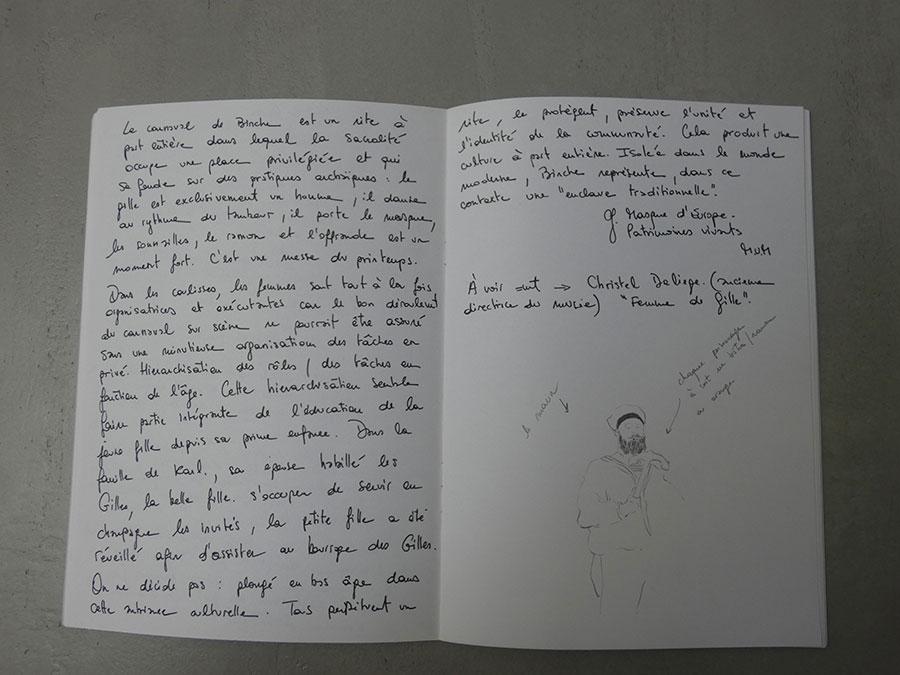 Le carnaval de Binche est un rite à
part entière dans lequel la sacralité
occupe une place privilégiée et qui
se fonde sur des pratiques archaïques : le
gille est exclusivement un homme, il danse
au rythme du tambour, il porte le masque,
les sonnailles, le ramon et l'offrande est un
moment fort. C'est une messe du printemps.
Dans les coulisses, les femmes sont tout à la fois
organisatrices et exécutantes car le bon déroulement
du carnaval sur scène ne pourrait être assuré
sans une minutieuse organisation des tâches en
privé. Hiérarchisation des rôles / des tâches en
fonction de l'âge. Cette hiérarchisation semble
faire partie intégrante de l'éducation de la
jeune fille depuis sa prime enfance. Dans la
famille de Karl., sa épouse habillé les
Gilles, la belle fille. s'occuper de servir en
champagne les invités, la petite fille a été
réveillé afin d'assister au bourrage des Gilles.
On ne décide pas : plongé en bas âge dans
cette culturelle. Tous perpétuent un
rite, le protègent, préserve l'unité et
l'identité de la communauté. Cela produit une
culture à part entière. Isolée dans le monde
moderne, Binche représente, dans ce
contexte une "enclave traditionnelle".
Masque d'Europe.
Patrimoines vivants
À voir → Christel Deliège. (ancienne
directrice du musée) "Femme de Gille".
chaque personnage
à